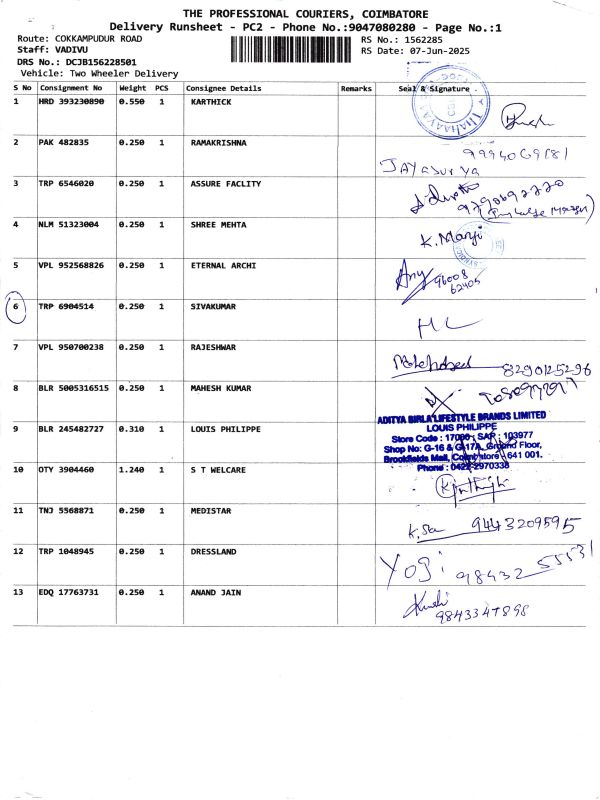 THE PROFESSIONAL COURIERS, COIMBATORE
Delivery Runsheet - PC2 - Phone No.:9047080280 - Page No.:1
Route: COKKAMPUDUR ROAD RS No.: 1562285
Staff: VADIVU RS Date: 07-Jun-2025
DRS No.: DCJB156228501
Vehicle: Two Wheeler Delivery
S No Consignment No Weight PCS Consignee Details Remarks Seal & Signature
1 HRD 393230890 0.550 1 KARTHICK
2 PAK 482835 0.250 1 RAMAKRISHNA
JAYASURYA
3 TRP 6546020 0.250 1 ASSURE FACLITY
4 NLM 51323004 0.250 1 SHREE MEHTA K. Manji
5 VPL 952568826 0.250 1 ETERNAL ARCHI 96008
62405
6 TRP 6904514 0.250 1 SIVAKUMAR
7 VPL 950700238 0.250 1 RAJESHWAR 8290125296
8 BLR 5005316515 0.250 1 MAHESH KUMAR
9 BLR 245482727 0.310 1 LOUIS PHILIPPE
ADITYA BIRLA LIFESTYLE BRANDS LIMITED
LOUIS PHILIPPE
Store Code : 17066 ; SAP : 103977
Shop No: G-16 & G-17A, Ground Floor,
Brookfields Mall, Coimbatore - 641 001.
Phone : 0422-2970338
10 OTY 3904460 1.240 1 S T WELCARE
11 TNJ 5568871 0.250 1 MEDISTAR 9443209595
12 TRP 1048945 0.250 1 DRESSLAND Yogi 98432 55531
13 EDQ 17763731 0.250 1 ANAND JAIN
9843347898